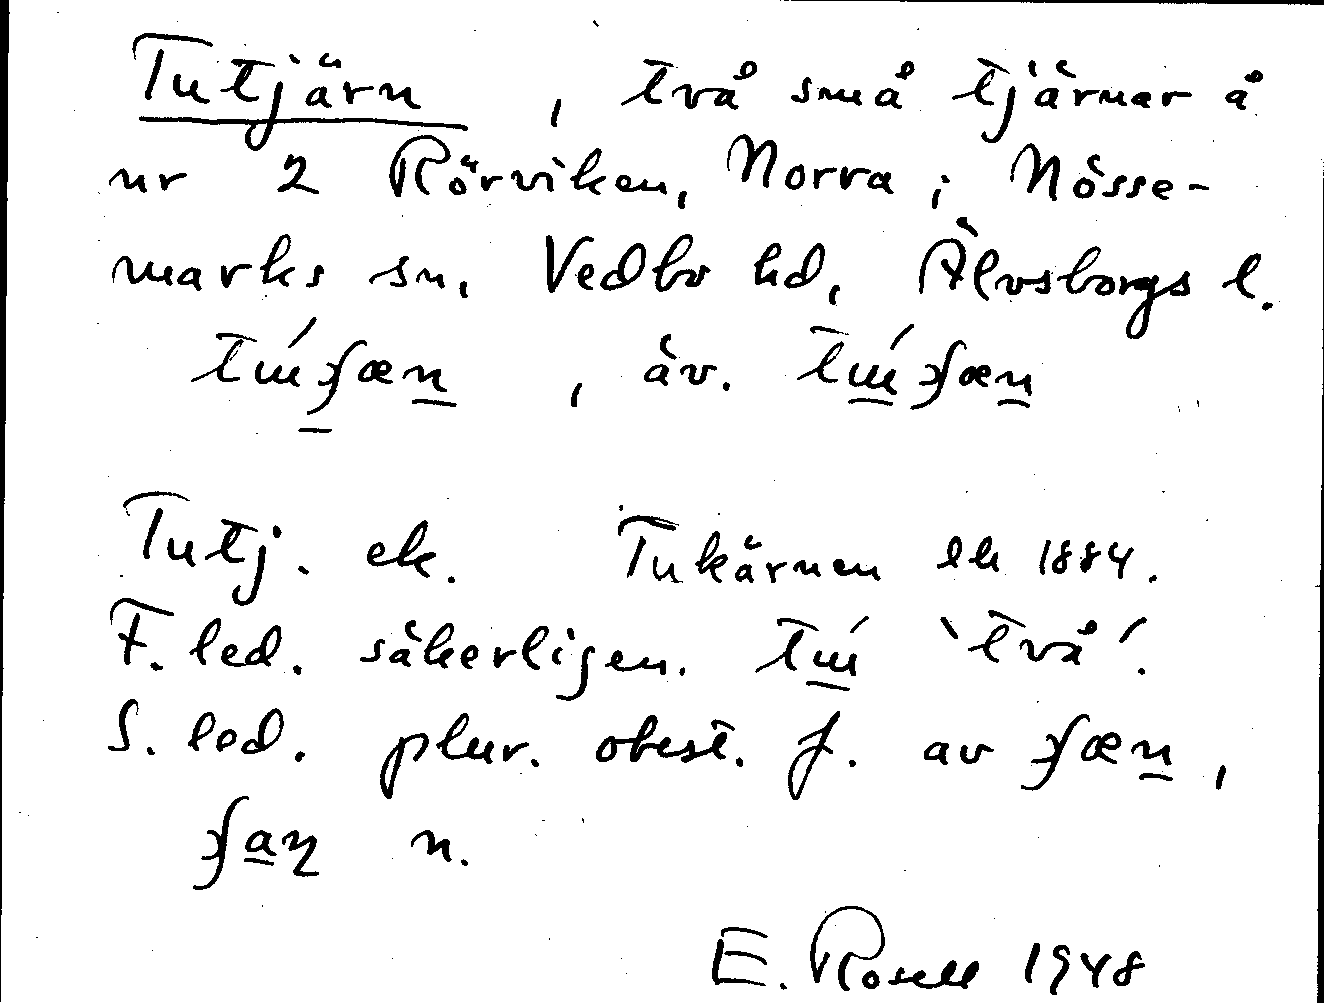 Tutjärn, två små tjärnar å
nr 2 Rörviken, Norra i Nösse-
marks sn, Vedbo hd, Älvsborgs l.
, äv.
Tutj. ek. Tukärnen EK 1884.
F. led. säkerligen 'två'.
S. led. plur. obest. f. av ,
n.
E. Rosell 1948